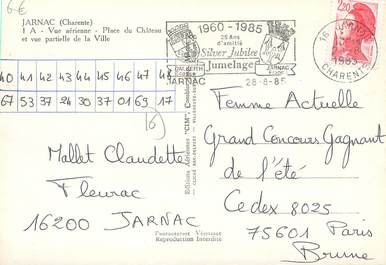 6-€
JARNAC (Charente)
1 A - Vue aérienne - Place du Château
et vue partielle de la Ville
40 41 42 43 44 45 46 47 48
67 53 37 24 30 37 01 69 17
1960-1985
25 Ans
d'amitié
Silver Jubilee
Jumelage
DALKEITH
JARNAC
JARNAC
28-8-85
2,20
16 JARNAC
CHARENTE
Mallet Claudette
Fleurac
16200 JARNAC
Editions Aériennes "CIM", Combier
Fabrication Véritable
Reproduction Interdite
Femme Actuelle
Grand Concours Gagnant
de l'été
Cedex 8025
75601 Paris
Brune